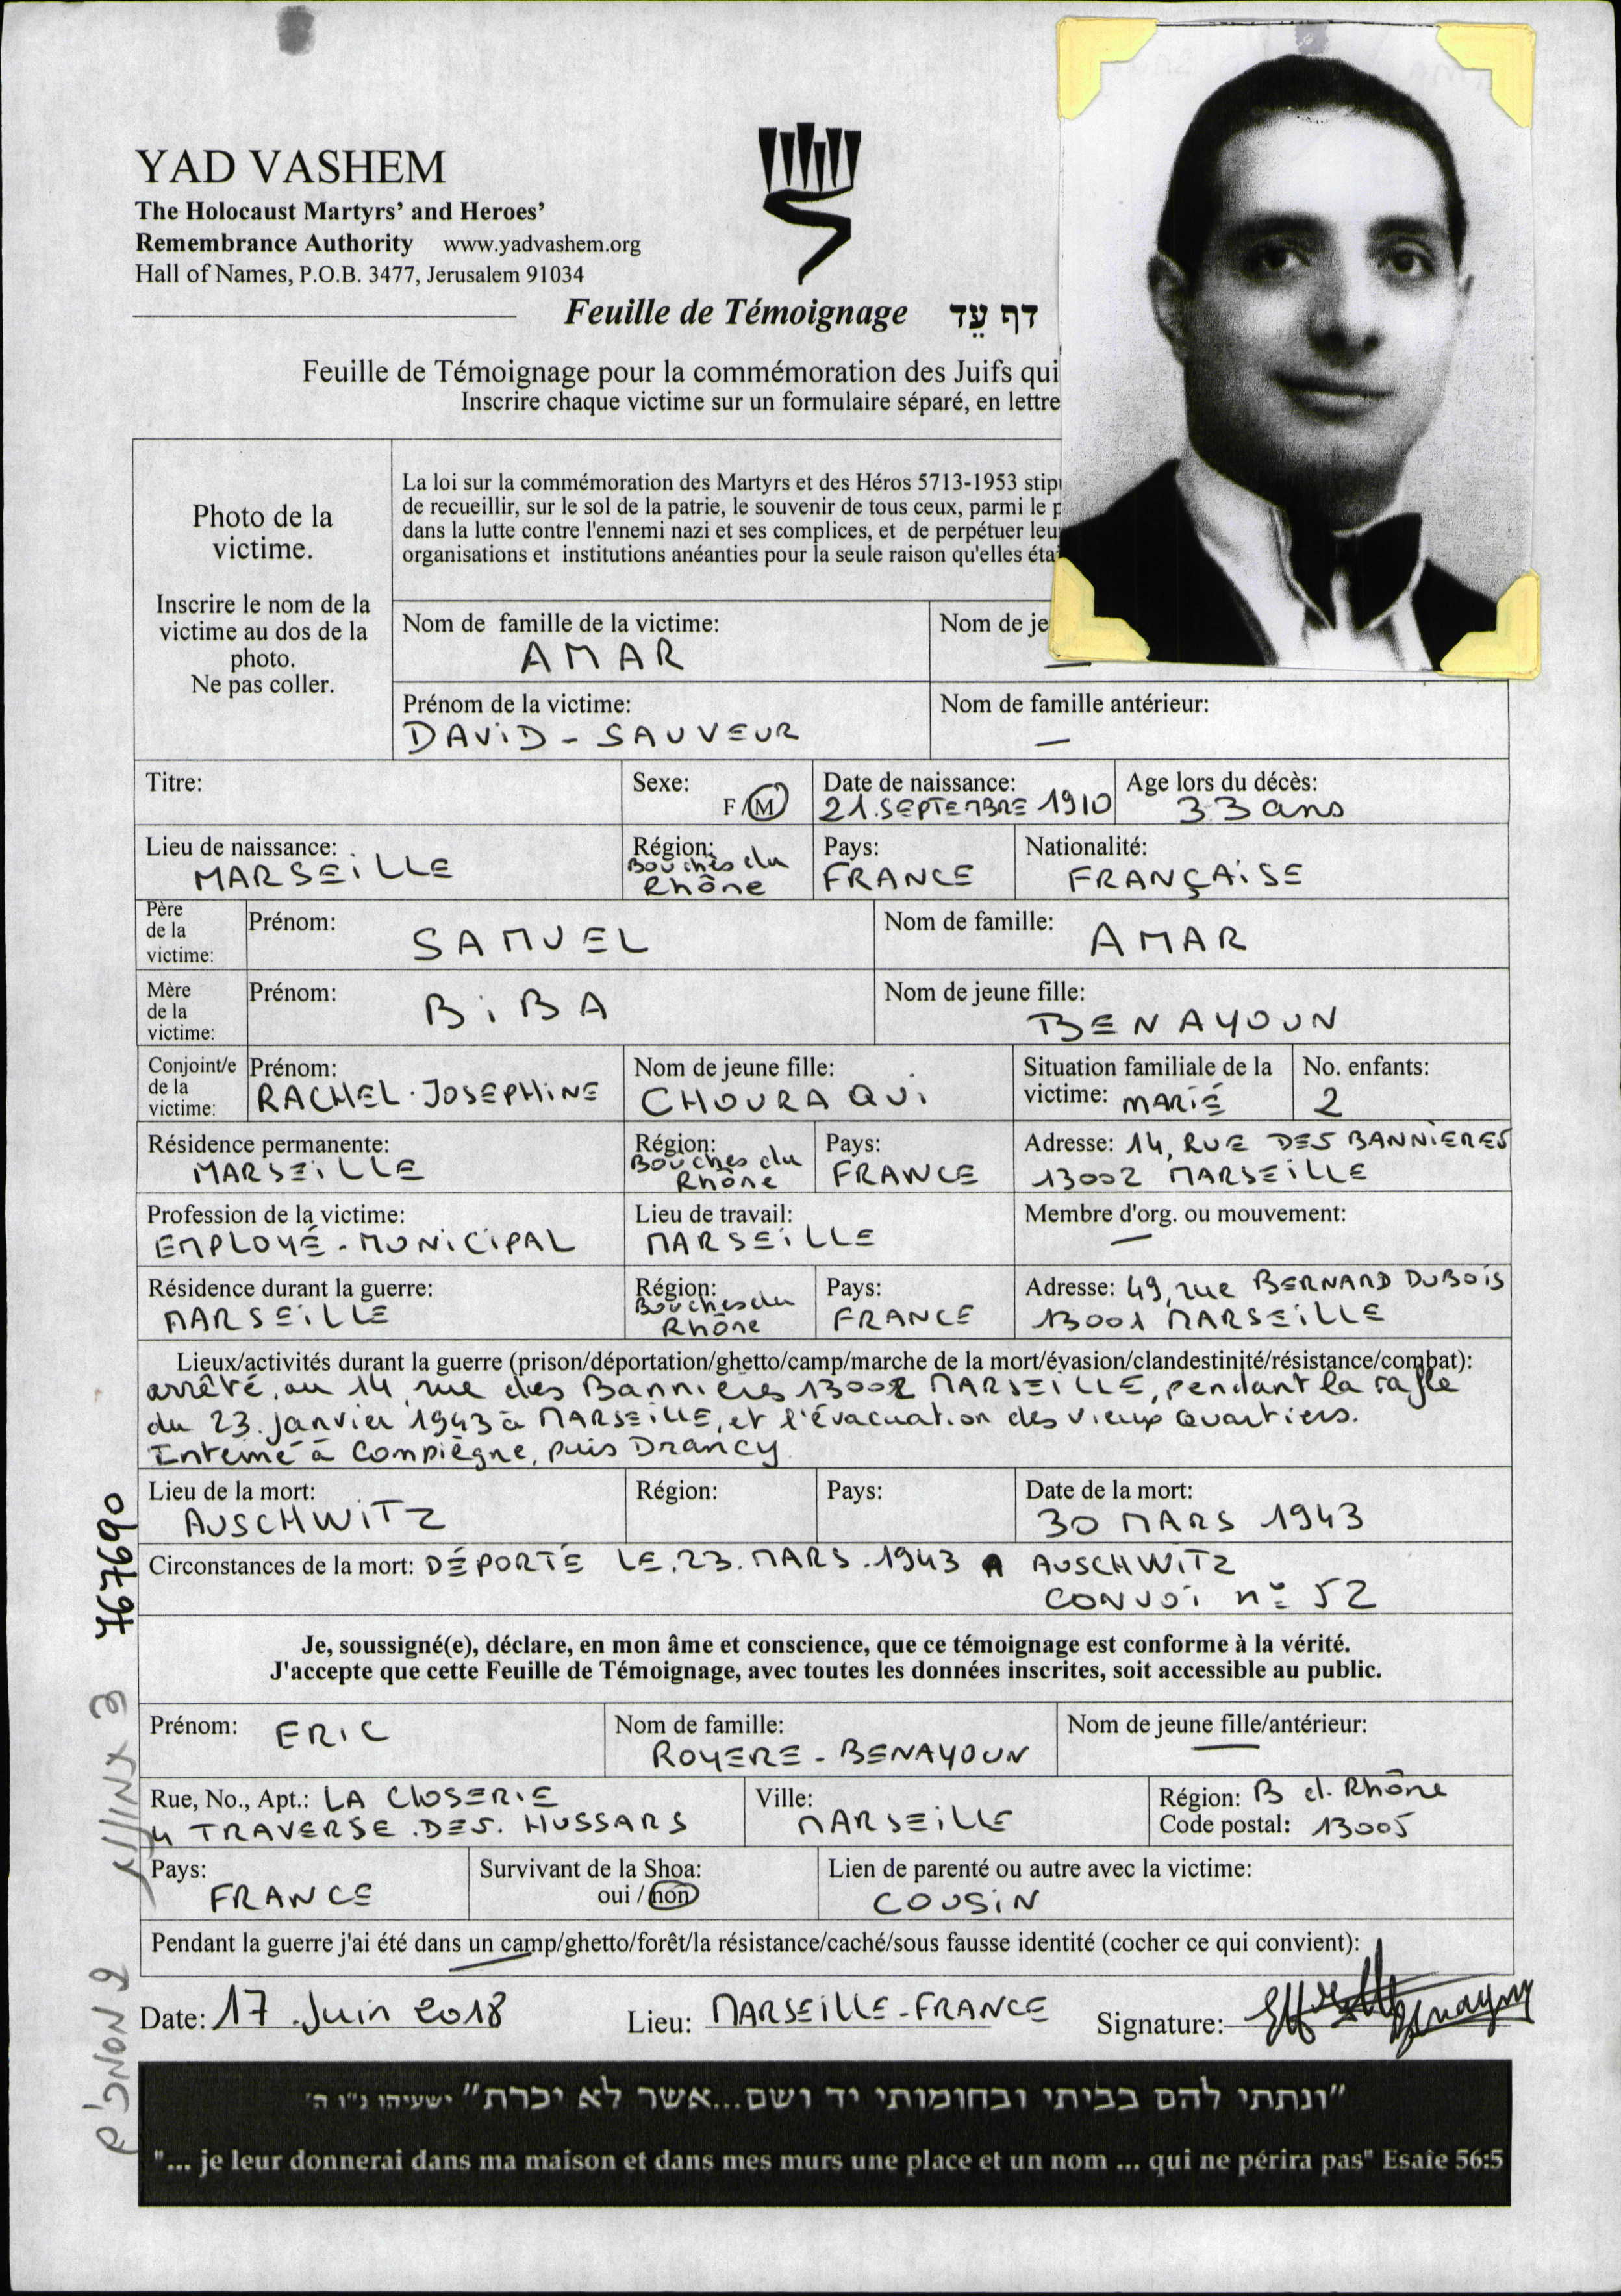 YAD VASHEM
The Holocaust Martyrs' and Heroes'
Remembrance Authority www.yadvashem.org
Hall of Names, P.O.B. 3477, Jerusalem 91034
Feuille de Témoignage דף עֵד
Feuille de Témoignage pour la commémoration des Juifs qui
Inscrire chaque victime sur un formulaire séparé, en lettre
Photo de la
victime.
Inscrire le nom de la
victime au dos de la
photo.
Ne pas coller.
La loi sur la commémoration des Martyrs et des Héros 5713-1953
de recueillir, sur le sol de la patrie, le souvenir de tous ceux, parmi le
dans la lutte contre l'ennemi nazi et ses complices, et de perpétuer leu
organisations et institutions anéanties pour la seule raison qu'elles
Nom de famille de la victime:
AMAR
Nom de je
—
Prénom de la victime:
DAViD - SAUVEUR
Nom de famille antérieur:
—
Titre:
Sexe:
F / M
Date de naissance:
21.SEPTEMBRE 1910
Age lors du décès:
33 ans
Lieu de naissance:
MARSEiLLE
Région:
Bouches du
Rhône
Pays:
FRANCE
Nationalité:
FRANÇAiSE
Père
de la
victime:
Prénom:
SAMUEL
Nom de famille:
AMAR
Mère
de la
victime:
Prénom:
BiBA
Nom de jeune fille:
BENAYOUN
Conjoint/e
de la
victime:
Prénom:
RACHEL.JOSEPHINE
Nom de jeune fille:
CHOURAQUi
Situation familiale de la
victime: MARiÉ
No. enfants:
2
Résidence permanente:
MARSEiLLE
Région:
Bouches du
Rhône
Pays:
FRANCE
Adresse: 14, RUE DES BANNIERES
13002 MARSEiLLE
Profession de la victime:
EMPLOYÉ - MUNiCiPAL
Lieu de travail:
MARSEiLLE
Membre d'org. ou mouvement:
—
Résidence durant la guerre:
MARSEiLLE
Région:
Bouches du
Rhône
Pays:
FRANCE
Adresse: 49, rue BERNARD DUBOiS
13001 MARSEiLLE
Lieux/activités durant la guerre (prison/déportation/ghetto/camp/marche de la mort/évasion/clandestinité/résistance/combat):
arrêté, au 14 rue des Bannières 13002 MARSEiLLE, pendant la rafle
du 23. janvier 1943 à MARSEiLLE, et l'évacuation des vieux Quartiers.
Interné à Compiègne, puis Drancy
Lieu de la mort:
AUSCHWiTZ
Région:
Pays:
Date de la mort:
30 MARS 1943
Circonstances de la mort: DÉPORTÉ LE.23.MARS.1943 A AUSCHWiTZ
CONVOi n° 52
Je, soussigné(e), déclare, en mon âme et conscience, que ce témoignage est conforme à la vérité.
J'accepte que cette Feuille de Témoignage, avec toutes les données inscrites, soit accessible au public.
Prénom: ERiC
Nom de famille:
ROYERE - BENAYOUN
Nom de jeune fille/antérieur:
—
Rue, No., Apt.: LA ClOSERiE
4 TRAVERSE.DES.HUSSARS
Ville:
MARSEiLLE
Région: B d. Rhône
Code postal: 13005
Pays:
FRANCE
Survivant de la Shoa:
oui / non
Lien de parenté ou autre avec la victime:
COUSiN
Pendant la guerre j'ai été dans un camp/ghetto/forêt/la résistance/caché/sous fausse identité (cocher ce qui convient):
Date: 17.Juin 2018
Lieu: MARSEiLLE-FRANCE
Signature:
"ונתתי להם בביתי ובחומותי יד ושם...אשר לא יכרת" ישעיהו נ"ו ה'
"... je leur donnerai dans ma maison et dans mes murs une place et un nom ... qui ne périra pas" Esaîe 56:5
767690
3
9 מסמכים